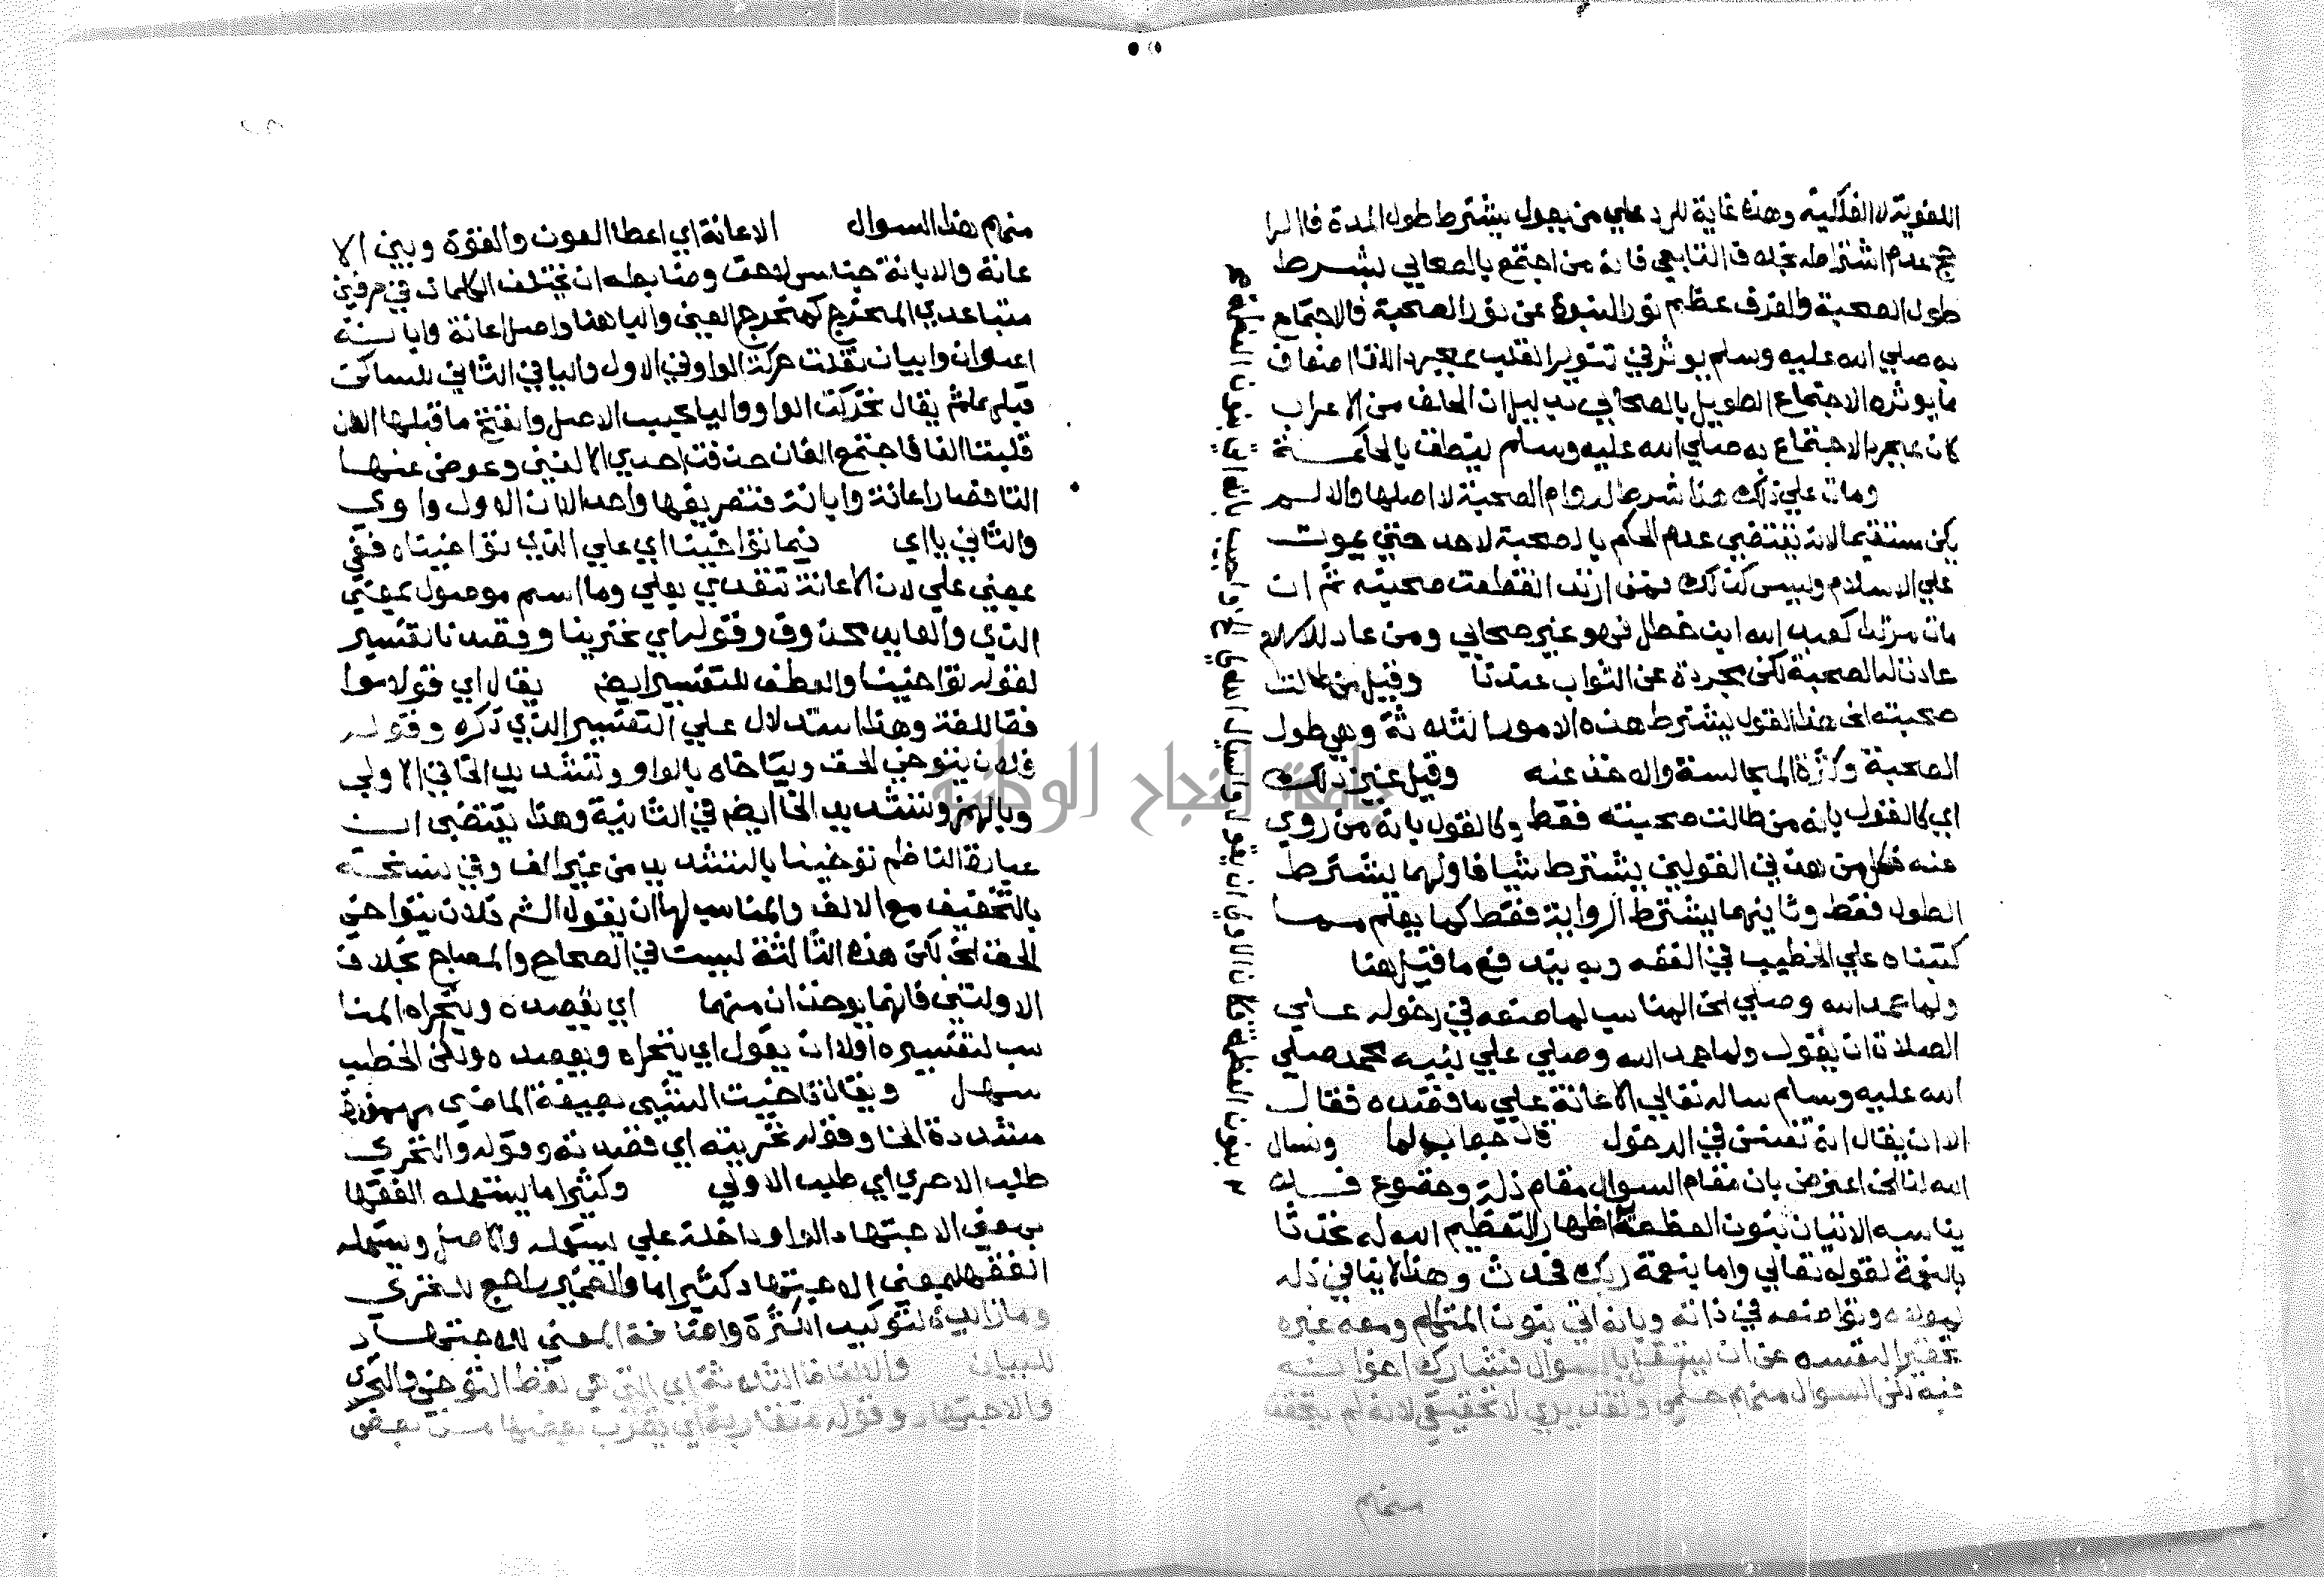 اللغوية لا الفلكية وهذه غاية للرد علي من يقول يشترط طول المدة فالرا
جح عدم اشتراطه بخلاف التابعي فانه من اجتمع بالصحابي بشرط
طول الصحبة والفرق عظم نور النبوة عن نور الصحبة فالاجتماع
به صلي الله عليه وسلم يوثر في تنوير القلب بمجرد اللقا اضعاف
ما يوثره الاجتماع الطويل بالصحابي بدليل ان الجلف من الاعراب
كان بمجرد الاجتماع به صلي الله عليه وسلم ينطق بالحكمة
ومات علي ذلك هذا شرط لدوام الصحبة لا اصلها والا لم
يكن مستقيما لانه يقتضي عدم الحكم بالصحبة لاحد حتي يموت
علي الاسلام وليس كذلك فمن ارتد انقطعت صحبته ثم ان
مات مرتدا كعبد الله ابن خطل فهو غير صحابي ومن عاد للاسلام
عادت له الصحبة لكن مجردة عن الثواب عندنا وقيل من طالت
صحبته الخ هذا القول يشترط هذه الامور الثلاثة وهي طول
الصحبة وكثرة المجالسة والاخذ عنه وقيل غير ذلك
اي كالقول بانه من طالت صحبته فقط وكالقول بانه من روي
عنه فكل من هذين القولين يشترط شيا فاولهما يشترط
الطول فقط وثانيهما يشترط الرواية فقط كما يعلم مما
كتبناه علي الخطيب في الفقه وبه يندفع ما قيل هنا
ولما حمد الله وصلي الخ المناسب لما صنعه في دخوله علي
الصلاة ان يقول ولما حمد الله وصلي علي نبيه محمد صلي
الله عليه وسلم ساله تعالي الاعانة علي ما قصده فقال
الا ان يقال انه تفنن في الدخول قال جواب لما ونسال
الله لنا الخ اعترض بان مقام السوال مقام ذلة وخضوع فلا
يناسبه الاتيان بنون العظمة اظهار التعظيم الله له تحدثا
بالنعمة لقوله تعالي واما بنعمة ربك فحدث وهذا لا ينافي ذله
وتواضعه في ذاته وبانه اتي بنون المتكلم ومعه غيره
تحقيرا لنفسه عن ان يستقل بالسوال فتشارك اخوانه
فيه لكن السوال منهم حكمي وتقديري لا تحقيقي لانه لم يتحقق
منهم
بنون العظمة فكان الاولي ان يقول واسال الله لي الخ واجيب بانه اتي بنون العظمة
منهم هذا السوال الاعانة اي اعطا العون والقوة وبين الا
عانة والابانة جناس لاحق وضابطه ان تختلف الكلمات في حرفين
متباعدي المخرج كمخرج العين والبا هنا واصل اعانة وابانة
اعوان وابيان نقلت حركة الواو في الاول واليا في الثاني للساكن
قبلهما ثم يقال تحركت الواو واليا بحسب الاصل وانفتح ما قبلها الان
قلبتا الفا فاجتمع الفان حذفت احدي الالفين وعوض عنها
التا فصار اعانة وابانة فتصريفها واحد الا ان الاول واوي
والثاني يا اي فيما توخينا اي علي الذي توخيناه ففي
بمعني علي لان الاعانة تتعدي بعلي وما اسم موصول بمعني
الذي والعايد محذوف وقوله اي تحرينا وقصدنا تفسير
لقوله توخينا والعطف للتفسير ايضا يقال اي قولا موا
فقا للغة وهذا استدلال علي التفسير الذي ذكره وقوله
فلان يتوخي الحق ويتاخاه بالواو وتشديد الخا في الاولي
وبالهمز وتشديد الخا ايضا في الثانية وهذا يقتضي ان
عبارة الناظم توخينا بالتشديد من غير الف وفي نسخة
بالتخفيف مع الالف والمناسب لها ان يقول الش فلان يتواخي
الحق الخ لكن هذه الثالثة ليست في الصحاح والمصباح بخلاف
الاولتين فانهما يوخذان منهما اي يقصده ويتحراه المنا
سب لتفسيره اولا ان يقول اي يتحراه ويقصده ولكن الخطب
سهل ويقال تاخيت الشي بصيغة الماضي مهموزة
مشددة الخا وقوله تحريته اي قصدته وقوله والتحري
طلب الاحري اي طلب الاولي وكثيرا ما يستعمله الفقها
بمعني الاجتهاد الواو داخلة علي يستعمله والاصل ويستعمله
الفقها بمعني الاجتهاد كثيرا ما والضمير راجع للتحري
وما زايدة لتوكيد الكثرة واضافة المعني للاجتهاد
للبيان والالفاظ الثلاثة اي التي هي لفظ التوخي والتحري
والاجتهاد وقوله متقاربة اي يقرب بعضها من بعض